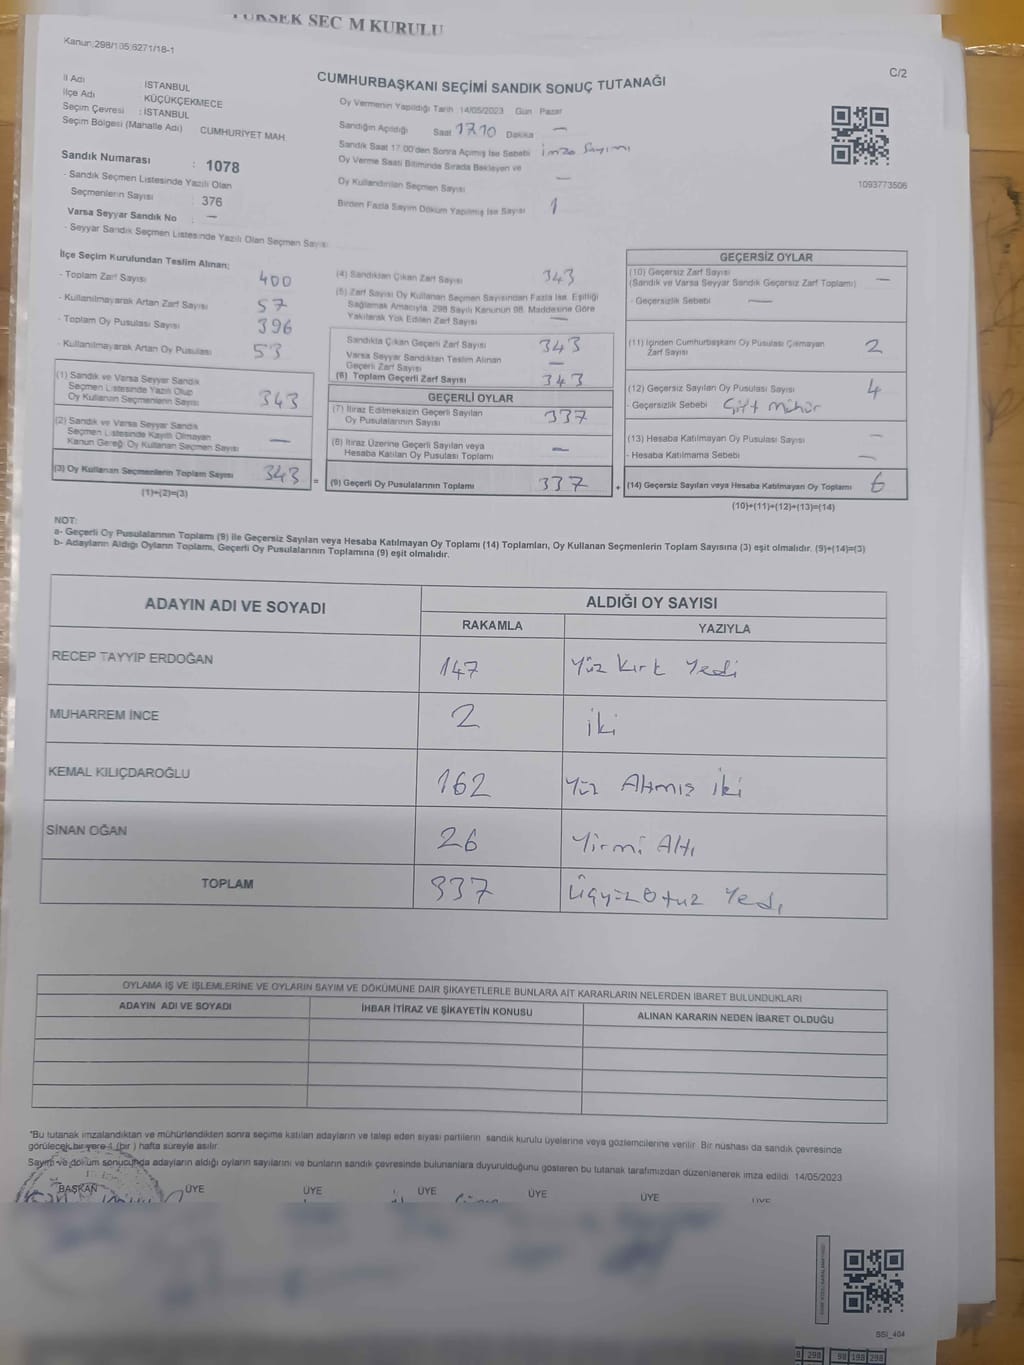 YÜKSEK SEÇİM KURULU
Kanun:298/105,6271/18-1
C/2
CUMHURBAŞKANI SEÇİMİ SANDIK SONUÇ TUTANAĞI
İl Adı : İSTANBUL
İlçe Adı : KÜÇÜKÇEKMECE
Seçim Çevresi : İSTANBUL
Seçim Bölgesi (Mahalle Adı) CUMHURİYET MAH
Sandık Numarası : 1078
- Sandık Seçmen Listesinde Yazılı Olan
Seçmenlerin Sayısı : 376
Varsa Seyyar Sandık No : —
- Seyyar Sandık Seçmen Listesinde Yazılı Olan Seçmen Sayısı:
Oy Vermenin Yapıldığı Tarih :14/05/2023 Gün : Pazar
Sandığın Açıldığı Saat 17.10 Dakika —
Sandık Saat 17:00'den Sonra Açılmış İse Sebebi imza Sayımı
Oy Verme Saati Bitiminde Sırada Bekleyen ve
Oy Kullandırılan Seçmen Sayısı —
Birden Fazla Sayım Döküm Yapılmış İse Sayısı 1
1093773506
İlçe Seçim Kurulundan Teslim Alınan:
- Toplam Zarf Sayısı 400
- Kullanılmayarak Artan Zarf Sayısı 57
- Toplam Oy Pusulası Sayısı 396
- Kullanılmayarak Artan Oy Pusulası 53
(1) Sandık ve Varsa Seyyar Sandık
Seçmen Listesinde Yazılı Olup
Oy Kullanan Seçmenlerin Sayısı 343
(2) Sandık ve Varsa Seyyar Sandık
Seçmen Listesinde Kayıtlı Olmayan
Kanun Gereği Oy Kullanan Seçmen Sayısı —
(3) Oy Kullanan Seçmenlerin Toplam Sayısı 343
(1)+(2)=(3)
(4) Sandıktan Çıkan Zarf Sayısı 343
(5) Zarf Sayısı Oy Kullanan Seçmen Sayısından Fazla İse, Eşitliği
Sağlamak Amacıyla, 298 Sayılı Kanunun 98. Maddesine Göre
Yakılarak Yok Edilen Zarf Sayısı —
Sandıkta Çıkan Geçerli Zarf Sayısı 343
Varsa Seyyar Sandıktan Teslim Alınan
Geçerli Zarf Sayısı —
(6) Toplam Geçerli Zarf Sayısı 343
GEÇERLİ OYLAR
(7) İtiraz Edilmeksizin Geçerli Sayılan
Oy Pusulalarının Sayısı 337
(8) İtiraz Üzerine Geçerli Sayılan veya
Hesaba Katılan Oy Pusulası Toplamı —
= (9) Geçerli Oy Pusulalarının Toplamı 337
GEÇERSİZ OYLAR
(10) Geçersiz Zarf Sayısı
(Sandık ve Varsa Seyyar Sandık Geçersiz Zarf Toplamı) —
- Geçersizlik Sebebi —
(11) İçinden Cumhurbaşkanı Oy Pusulası Çıkmayan
Zarf Sayısı 2
(12) Geçersiz Sayılan Oy Pusulası Sayısı 4
- Geçersizlik Sebebi Çift mühür
(13) Hesaba Katılmayan Oy Pusulası Sayısı —
- Hesaba Katılmama Sebebi —
+ (14) Geçersiz Sayılan veya Hesaba Katılmayan Oy Toplamı 6
(10)+(11)+(12)+(13)=(14)
NOT:
a- Geçerli Oy Pusulalarının Toplamı (9) ile Geçersiz Sayılan veya Hesaba Katılmayan Oy Toplamı (14) Toplamları, Oy Kullanan Seçmenlerin Toplam Sayısına (3) eşit olmalıdır. (9)+(14)=(3)
b- Adayların Aldığı Oyların Toplamı, Geçerli Oy Pusulalarının Toplamına (9) eşit olmalıdır.
ADAYIN ADI VE SOYADI ALDIĞI OY SAYISI
RAKAMLA YAZIYLA
RECEP TAYYİP ERDOĞAN 147 Yüz Kırk Yedi
MUHARREM İNCE 2 iki
KEMAL KILIÇDAROĞLU 162 Yüz Altmış iki
SİNAN OĞAN 26 Yirmi Altı
TOPLAM 337 Üçyüz Otuz Yedi
OYLAMA İŞ VE İŞLEMLERİNE VE OYLARIN SAYIM VE DÖKÜMÜNE DAİR ŞİKAYETLERLE BUNLARA AİT KARARLARIN NELERDEN İBARET BULUNDUKLARI
ADAYIN ADI VE SOYADI İHBAR İTİRAZ VE ŞİKAYETİN KONUSU ALINAN KARARIN NEDEN İBARET OLDUĞU
*Bu tutanak imzalandıktan ve mühürlendikten sonra seçime katılan adayların ve talep eden siyasi partilerin sandık kurulu üyelerine veya gözlemcilerine verilir. Bir nüshası da sandık çevresinde
görülecek bir yere 1 (bir ) hafta süreyle asılır.
Sayım ve döküm sonucunda adayların aldığı oyların sayılarını ve bunların sandık çevresinde bulunanlara duyurulduğunu gösteren bu tutanak tarafımızdan düzenlenerek imza edildi. 14/05/2023
BAŞKAN ÜYE ÜYE ÜYE ÜYE ÜYE ÜYE
SSI_404
298 98 198 298